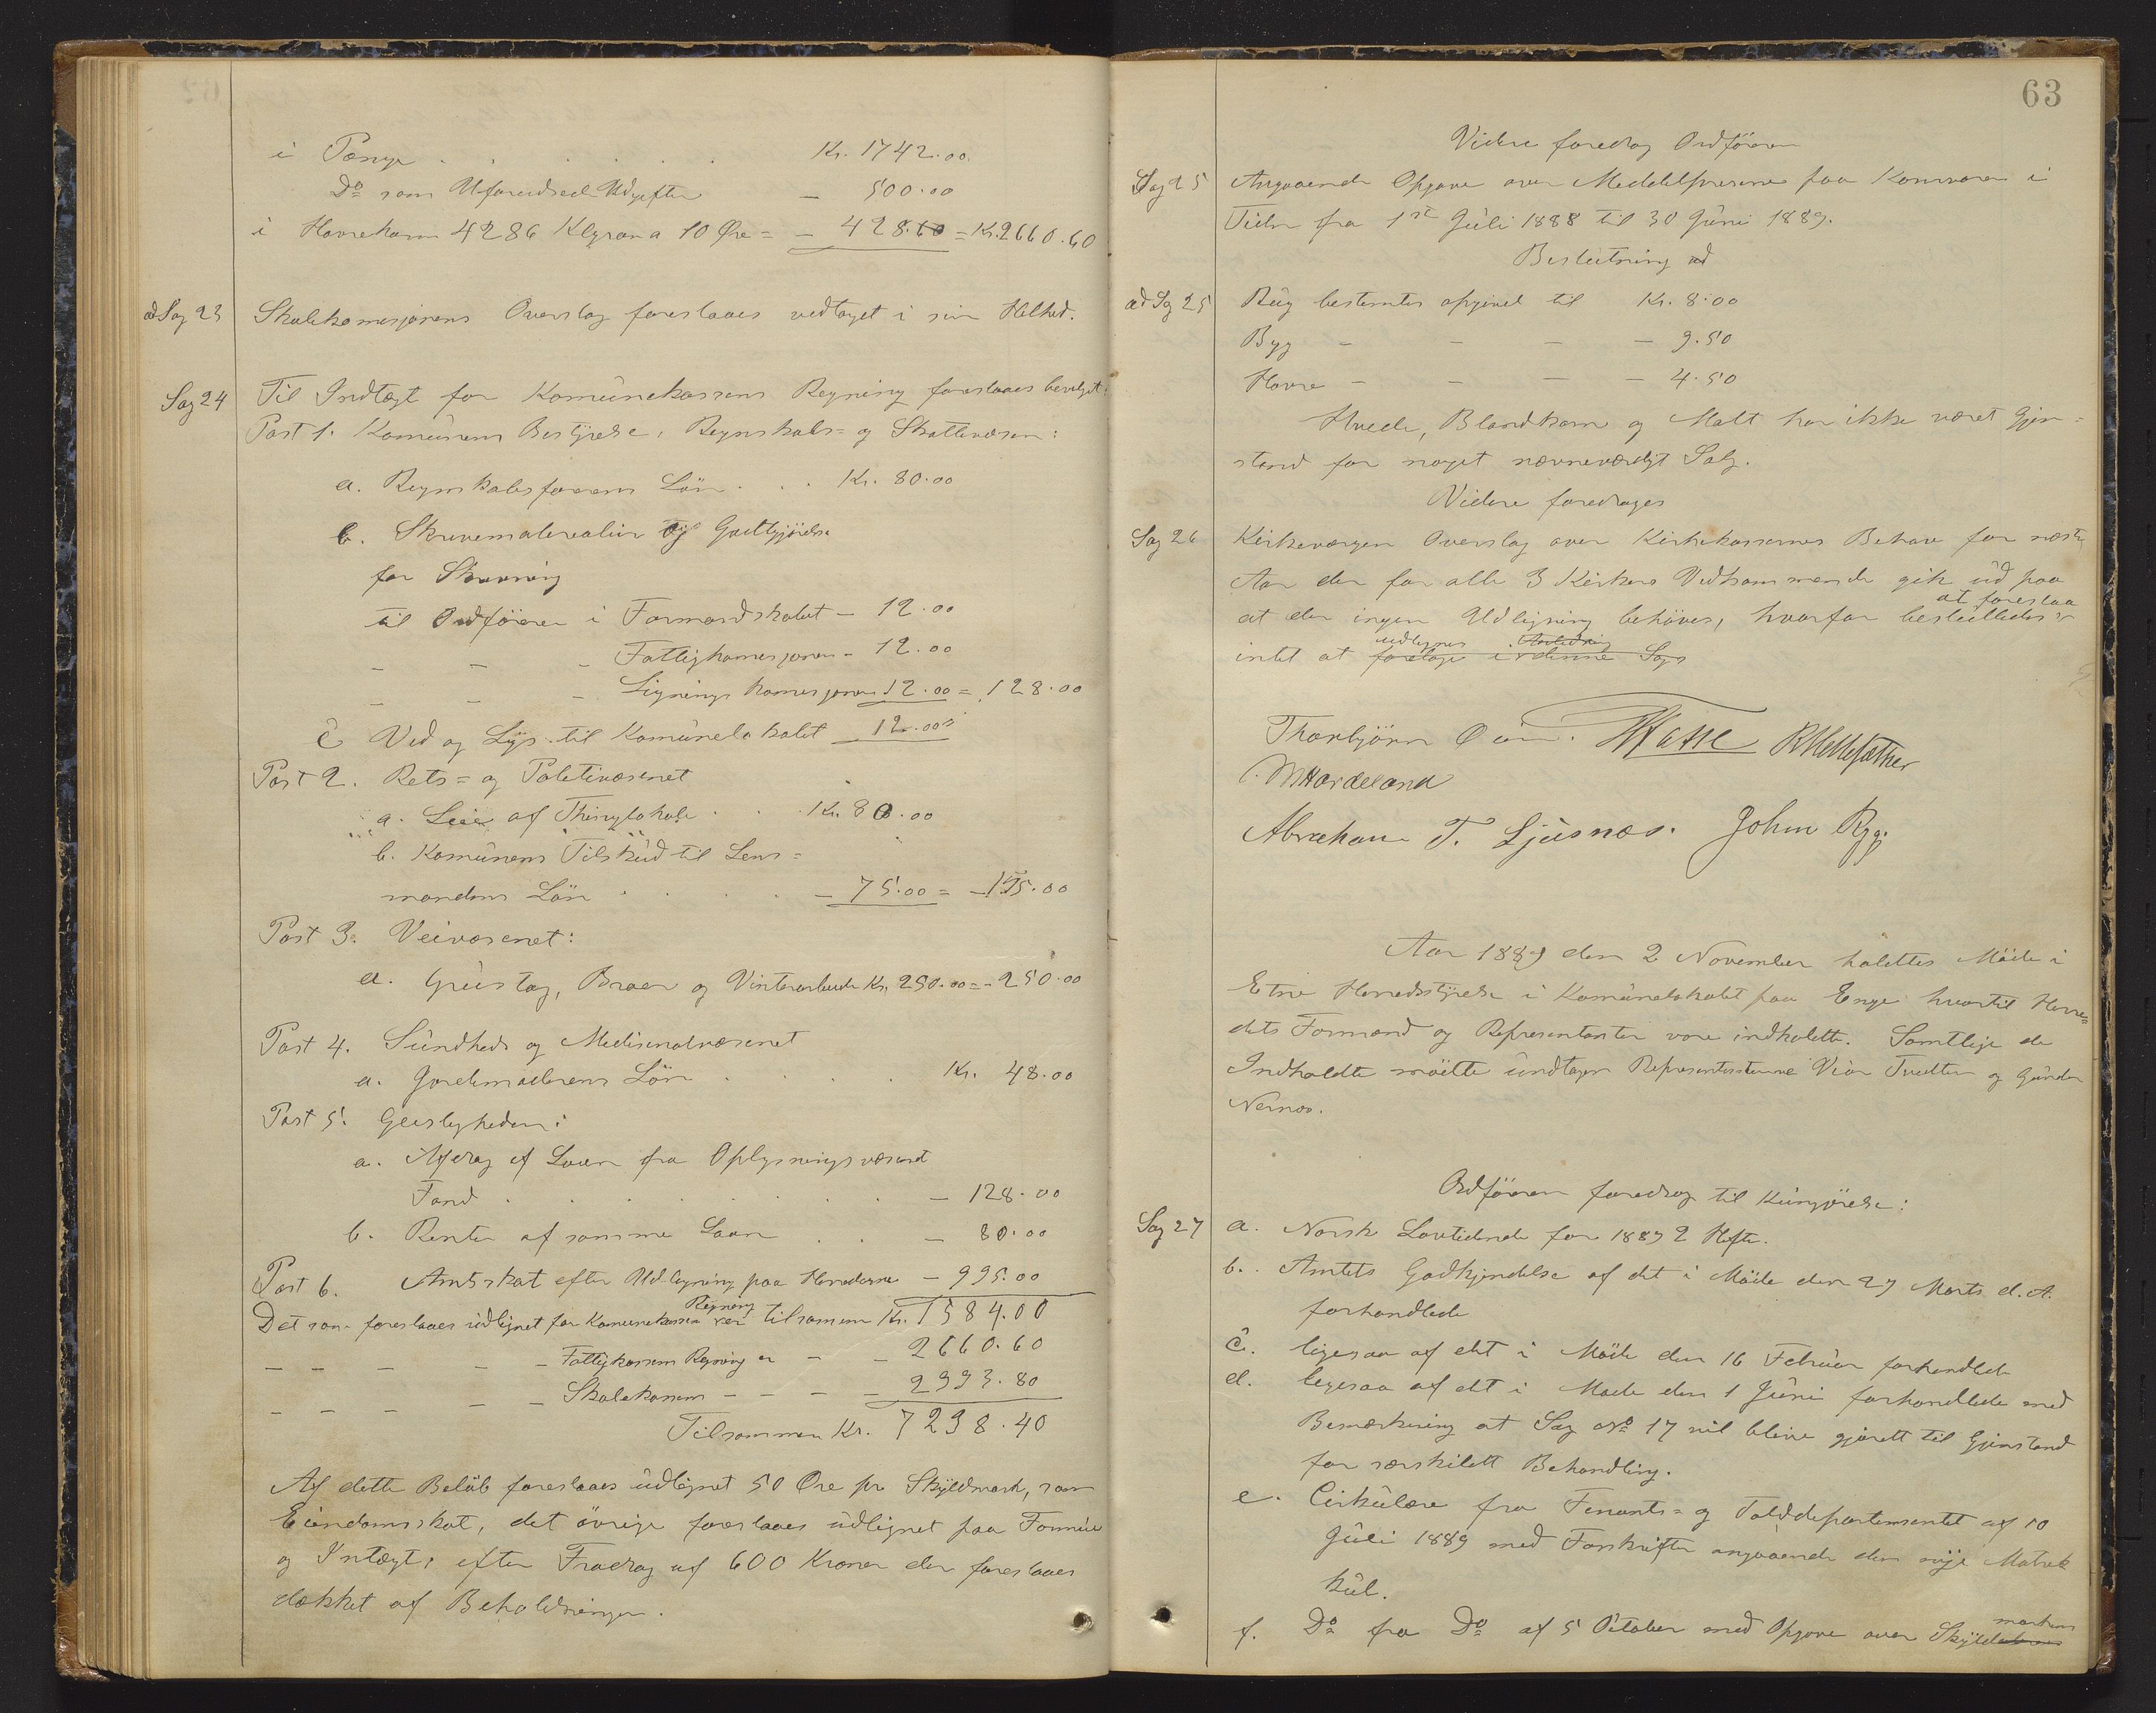 i Penge . . . . . . Kr. 1742.00
Do som Uforudseede Udgifter — 500.00
i Havrekorn 4286 Klgram a 10 Øre = — 428.60 = Kr. 2660.60
ad Sag 23 Skolekomesjonens Overslag foreslaaes vedtaget i sin Helhed.
Sag 24 Til Indtægt for Komünekassens Regning foreslaaes bevilget:
Post 1. Komünens Bestyrelse, Regnskabs= og Skattevæsen:
a. Regnskabsførerens Løn . . . Kr. 80.00
b. Skrivematerialier og Godtgjørelse
for Skrivning
til Ordføreren i Formandskabet — 12.00
— — — Fattigkomesjonen — 12.00
— — — Lignings komesjonen 12.00 = 128.00
c. Ved og Lys til Komünelokalet 12.00
Post 2. Rets= og Politivæsenet
a. Leie af Thinglokale . . Kr. 80.00
b. Komünens Tilskud til Lens=
mandens Løn . . . . . — 75.00 = — 155.00
Post 3. Veivæsenet:
a. Grustag, Broer og Vinterarbeide Kr. 250.00 = — 250.00
Post 4. Sündheds og Medisinalvæsenet
a. Jordemoderens Løn . . . . Kr. 48.00
Post 5. Geistligheden:
a. Afdrag af Laan fra Oplysningsvæsenets
Fond . . . . . . . — 128.00
b. Renter af samme Laan . . — 80.00
Post 6. Amtsskat efter Udligning paa Herrederne — 995.00
Det som foreslaaes üdlignet for Komunekassens Regning er tilsamen Kr. 1584.00
— — — — — Fattigkassens Regning er — — 2660.60
— — — — — Skolekassens — — — — 2993.80
Tilsammen Kr. 7238.40
Af dette Beløb foreslaaes üdlignet 50 Øre pr Skyldmark, som
Eiendomsskat, det øvrige foreslaaes üdlignet paa Formüe
og Intægt, efter Fradrag af 600 Kroner der foreslaaes
dækket af Beholdningen.
63
Videre foredrog Ordføreren
Sag 25 Angaaende Opgave over Meddelpriserne paa Kornvarer i
Tiden fra 1ste Jüli 1888 til 30 Jüni 1889.
Beslutning
ad Sag 25 Rüg bestemtes opgivet til Kr. 8.00
Byg — — — — 9.50
Havre — — — — 4.50
Hvede, Blandkorn og Malt har ikke været Gjen=
stand for noget nævneværdigt Salg.
Videre foredroges
Sag 26 Kirkeværgens Overslag over Kirkekassernes Behov for næste
Aar der for alle 3 Kirkers Vedkommende gik üd paa
at der ingen Udligning behøves, hvorfor besluttedes at foreslaa
intet at udlignes foretage i Anledning denne Sag
Thorbjørn Øien. R Mellesæther
M Hardeland
Abraham T. Ljüsnes. John Ryg
Aar 1889 den 2 November holdtes Møde i
Etne Herredsstyrelse i Komünelokalet paa Enge hvortil Herre=
dets Formænd og Repræsentanter vare indkaldte. Samtlige de
Indkaldte mødte ündtagen Repræsentanterne Tvedten og Günder
Nernæs.
Ordføreren foredrog til Kungjørelse:
Sag 27 a. Norsk Lovtidende for 1889 2 Hefte.
b. Amtets Godkjendelse af det i Møde den 27 Marts d. A.
forhandlede
c. ligesaa af det i Møde den 16 Februar forhandlede
d. ligesaa af det i Møde den 1 Jüni forhandlede med
Bemærkning at Sag No 17 vil blive gjordt til Gjenstand
for særskildt Behandling.
e. Cirkülære fra Finants= og Tolddepartementet af 10
Jüli 1889 med Forskrifter angaaende den nye Matrik
kül.
f. Do fra Do af 5 October med Opgave over Skyldmarken